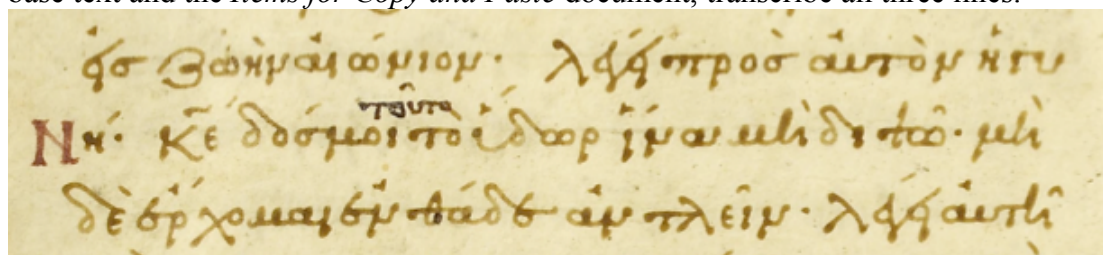 base text and the Items for Copy and Paste document, transcribe all three lines.
εἰς ζωὴν αἰώνιον· λέγει πρὸς αὐτὸν ἡ γυ
τοῦτο
Νή· κ̅ε̅ δός μοι τὸ ὕδωρ ἵνα μὴ διψῶ· μὴ
δὲ ἔρχομαι ἐνθάδε ἀντλεῖν· λέγει αὐτῆ